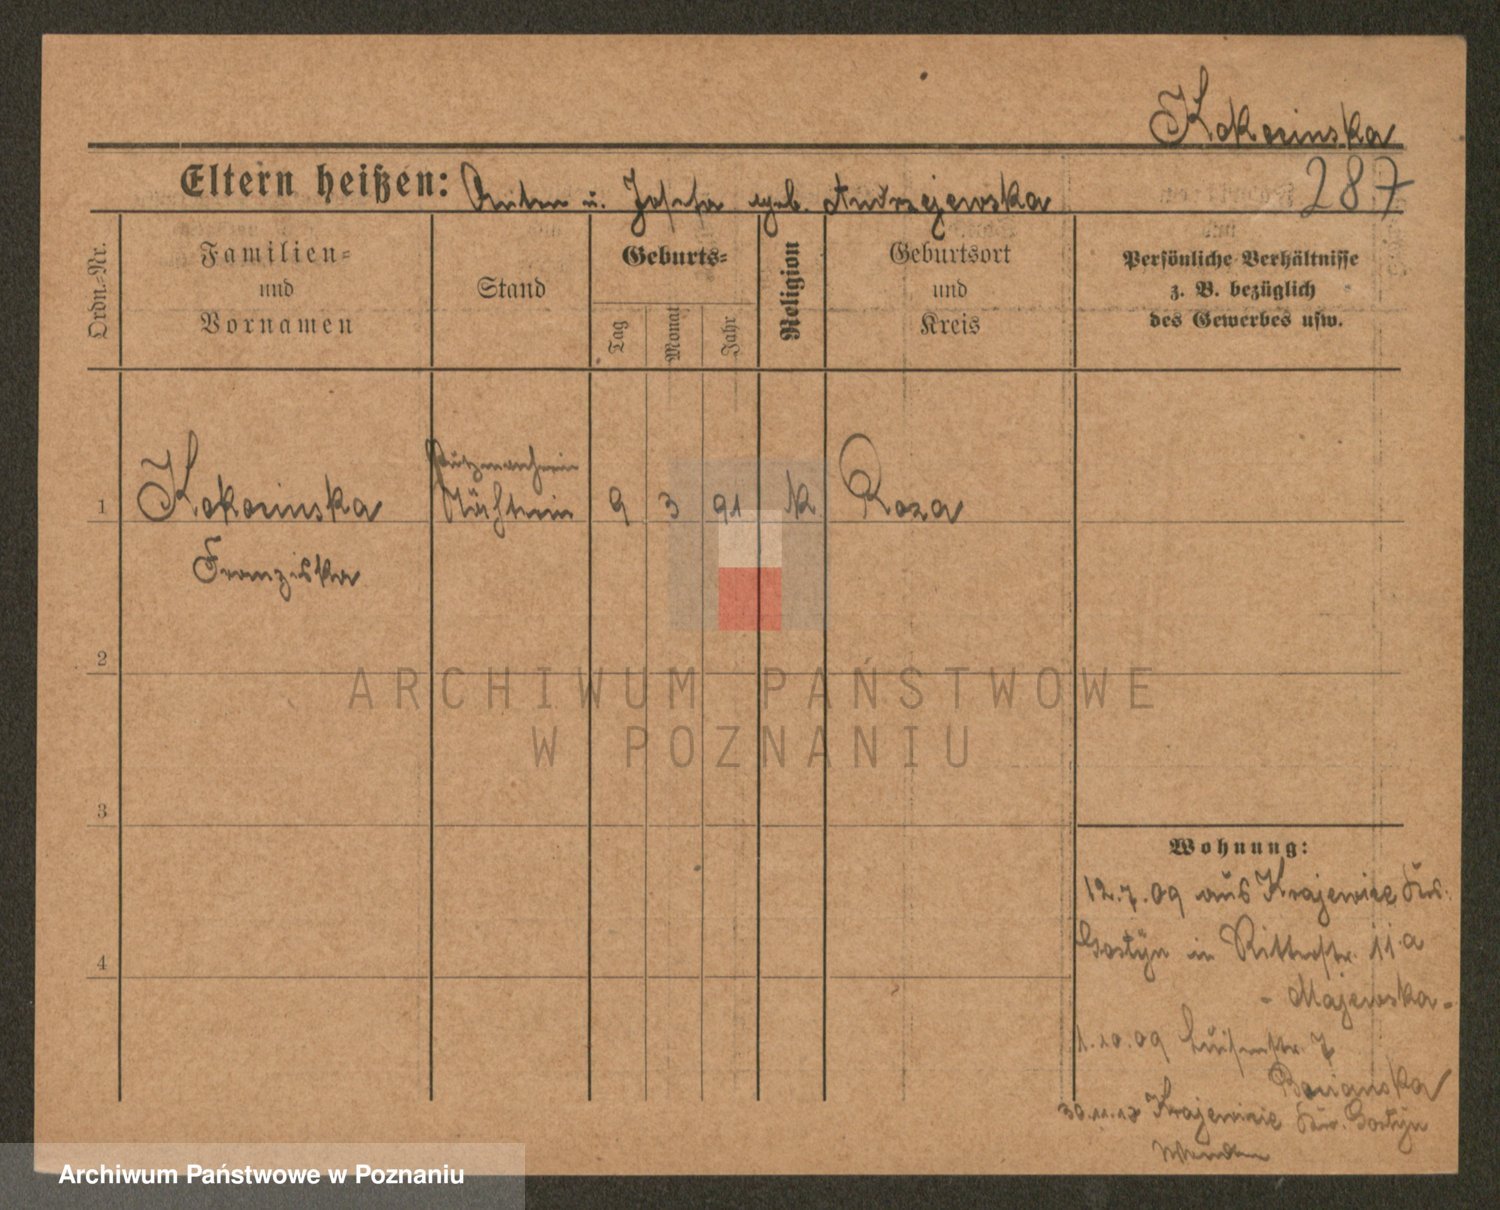 Kokocinska
287
Eltern heißen: Anton u. Josefa geb. Andrzejewska
Ordn.-Nr.
Familien-
und
Vornamen
Stand
Geburts-
Tag
Monat
Jahr
Religion
Geburtsort
und
Kreis
Persönliche Verhältnisse
z. B. bezüglich
des Gewerbes usw.
1
Kokocinska
Franziska
Putzmacherin
Nähterin
9
3
91
k
Roza
2
3
4
Wohnung:
12.7.09 aus Krajewice Krs.
Gostyn in Ritterstr. 11a
- Majewska -
1.10.09 Luisenstr. 7
30.11.17 Krajewice Krs. Gostyn
ARCHIWUM PAŃSTWOWE
W POZNANIU
Archiwum Państwowe w Poznaniu